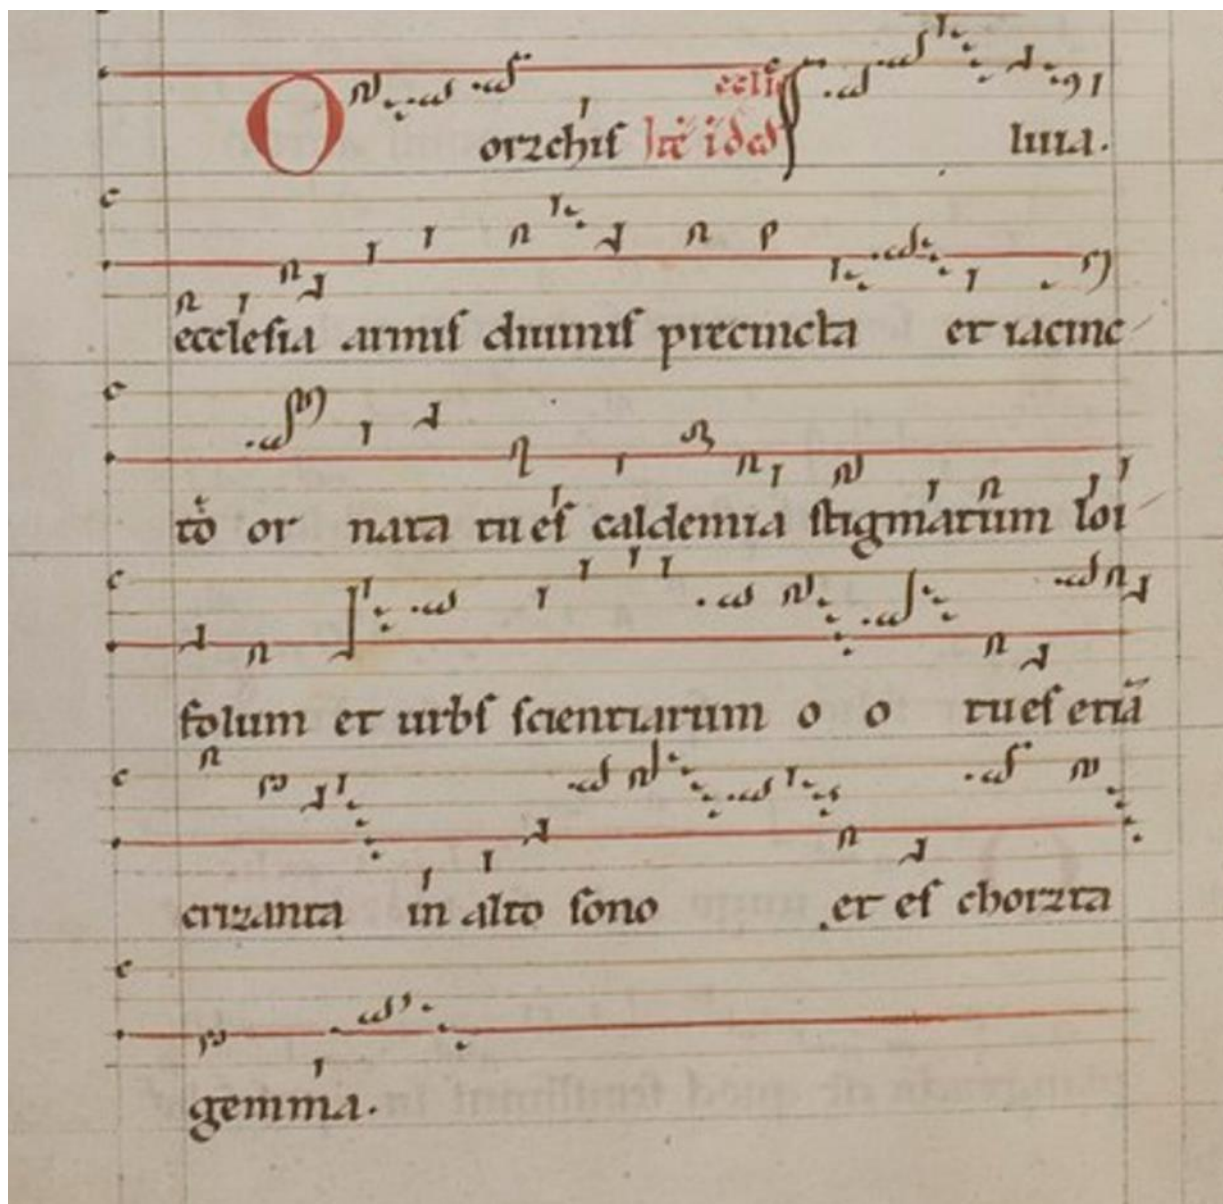 O orzchis eccłie
luia.
ecclesia armis diuinis precincta et iacinc
to or nata tu es caldemia stigmatum loi
folum et urbs scientiarum o o tu es etiā
crizanta in alto sono et es chorzta
gemma.